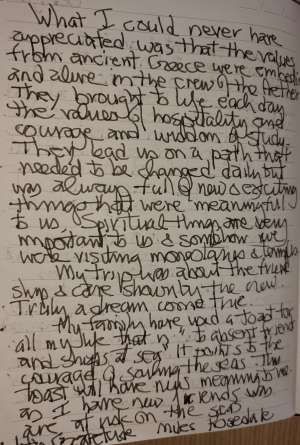 What I could never have
appreciated was that the values
from ancient Greece were embed
and alive in the crew of the
They brought to life each day
the values of hospitality and
courage and wisdom & study.
They lead us on a path that
needed to be changed daily but
was always full of new & exciting
things that were meaningful
to us. Spiritual things are very
important to us & somehow we
were visiting monasterys &
My trip was about the
ship & care shown by the crew.
Truly a dream come true
My family have used a toast for
all my life that is " to absent friends
and ships at sea". It points to the
courage of sailing the seas. This
toast will have new meaning to me
as I have new friends who
are at risk on the seas